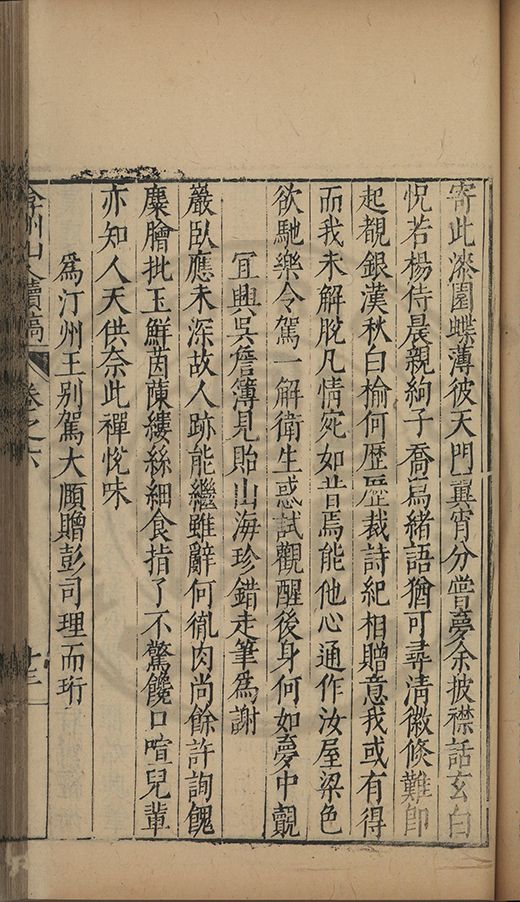 寄此漆園蝶薄彼天門翼宵分嘗夢余披襟話玄白
怳若楊侍晨親絢子喬舄緒語猶可尋清徽倏難即
起覩銀漢秋白榆何歷歷裁詩紀相贈意我或有得
而我未解脫凡情宛如昔焉能他心通作汝屋梁色
欲馳樂令駕一解衛生惑試觀醒後身何如夢中覿
宜興吳詹簿見貽山海珍錯走筆爲謝
巖臥應未深故人跡能繼雖辭何胤肉尚餘許詢餽
麋膾批玉鮮茵蔯縷絲細食指了不驚饞口喧兒輩
亦知人天供奈此禪悅味
爲汀州王別駕大頤贈彭司理而珩
弇州山人續稿
卷之六
十三